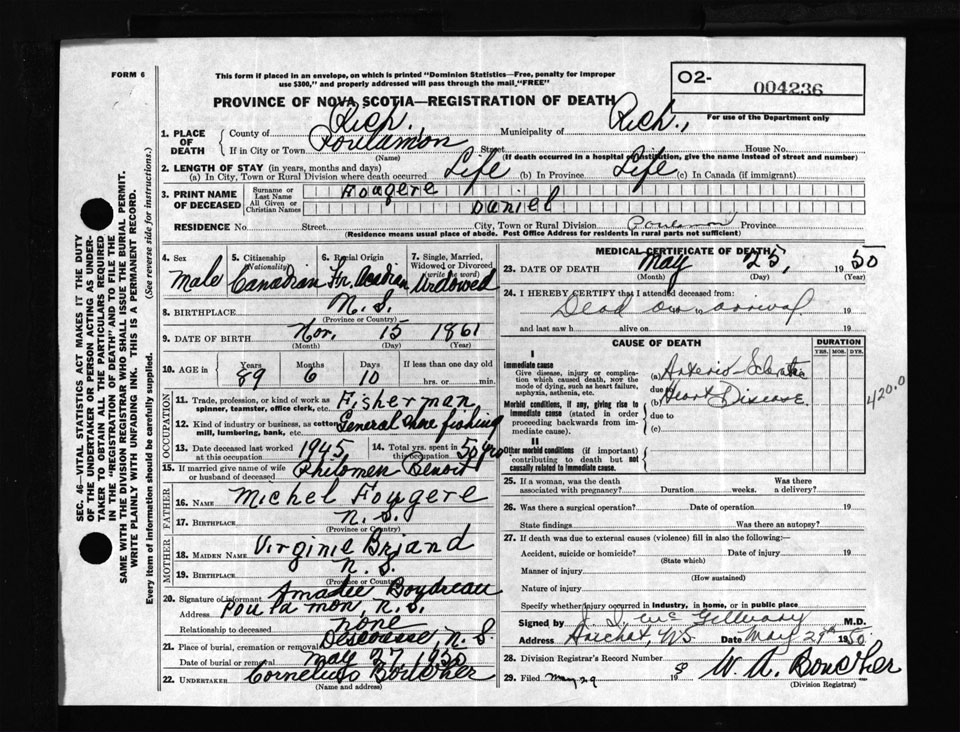 FORM 6
This form if placed in an envelope, on which is printed "Dominion Statistics—Free, penalty for improper
use $300," and properly addressed will pass through the mail "FREE"
O2- 004236
For use of the Department only
PROVINCE OF NOVA SCOTIA—REGISTRATION OF DEATH
1. PLACE OF DEATH County of Rich. Municipality of Rich.,
If in City or Town Poulamon Street House No.
(Name) (If death occurred in a hospital or institution, give the name instead of street and number)
2. LENGTH OF STAY (in years, months and days)
(a) In City, Town or Rural Division where death occurred Life (b) In Province Life (c) In Canada (if immigrant)
3. PRINT NAME OF DECEASED Surname or Last Name Fougere
All Given or Christian Names Daniel
RESIDENCE No. Street City, Town or Rural Division Poulamon Province
(Residence means usual place of abode. Post Office Address for residents in rural parts not sufficient)
4. Sex Male
5. Citizenship (Nationality) Canadian
6. Racial Origin Fr. Acadian
7. Single, Married, Widowed or Divorced (write the word) Widowed
8. BIRTHPLACE N. S.
(Province or Country)
9. DATE OF BIRTH Nov. 15 1861
(Month) (Day) (Year)
10. AGE in Years 89 Months 6 Days 10 If less than one day old hrs. or min.
OCCUPATION
11. Trade, profession, or kind of work as spinner, teamster, office clerk, etc. Fisherman
12. Kind of industry or business, as cotton mill, lumbering, bank, etc. General shore fishing
13. Date deceased last worked at this occupation 1945
14. Total yrs. spent in this occupation 50 yrs.
15. If married give name of wife or husband of deceased Philomen Benoit
FATHER
16. NAME Michel Fougere
17. BIRTHPLACE N. S.
(Province or Country)
MOTHER
18. MAIDEN NAME Virginie Briand
19. BIRTHPLACE N. S.
(Province or Country)
20. Signature of informant Amadee Boudreau
Address Poulamon, N.S.
Relationship to deceased none
21. Place of burial, cremation or removal Descousse, N. S.
Date of burial or removal May 27, 1950
22. UNDERTAKER Cornelius Boucher
(Name and address)
MEDICAL CERTIFICATE OF DEATH
23. DATE OF DEATH May 25, 1950
(Month) (Day) (Year)
24. I HEREBY CERTIFY that I attended deceased from:
Dead on arrival 19
and last saw h alive on 19
CAUSE OF DEATH
DURATION
YRS. MOS. DYS.
I
Immediate cause
Give disease, injury or complication which caused death, NOT the mode of dying, such as heart failure, asphyxia, asthenia, etc.
(a) Arterio-Sclerotic
due to
Morbid conditions, if any, giving rise to immediate cause (stated in order proceeding backwards from immediate cause).
(b) Heart Disease
due to
(c)
420.0
II
Other morbid conditions (if important) contributing to death but not causally related to immediate cause.
25. If a woman, was the death associated with pregnancy? Duration weeks. Was there a delivery?
26. Was there a surgical operation? Date of operation 19
State findings Was there an autopsy?
27. If death was due to external causes (violence) fill in also the following:—
Accident, suicide or homicide? Date of injury 19
(State which)
Manner of injury
(How sustained)
Nature of injury
Specify whether injury occurred in industry, in home, or in public place
Signed by McGillivary M.D.
Address Arichat, NS Date May 29th 1950
28. Division Registrar's Record Number
29. Filed May 29 19 W. A. Boucher
(Division Registrar)
SEC. 46—VITAL STATISTICS ACT MAKES IT THE DUTY
OF THE UNDERTAKER OR PERSON ACTING AS UNDER-
TAKER TO OBTAIN ALL THE PARTICULARS REQUIRED
IN THE "REGISTRATION OF DEATH" AND TO FILE THE
SAME WITH THE DIVISION REGISTRAR WHO SHALL ISSUE THE BURIAL PERMIT.
WRITE PLAINLY WITH UNFADING INK. THIS IS A PERMANENT RECORD.
Every item of information should be carefully supplied. (See reverse side for instructions.)